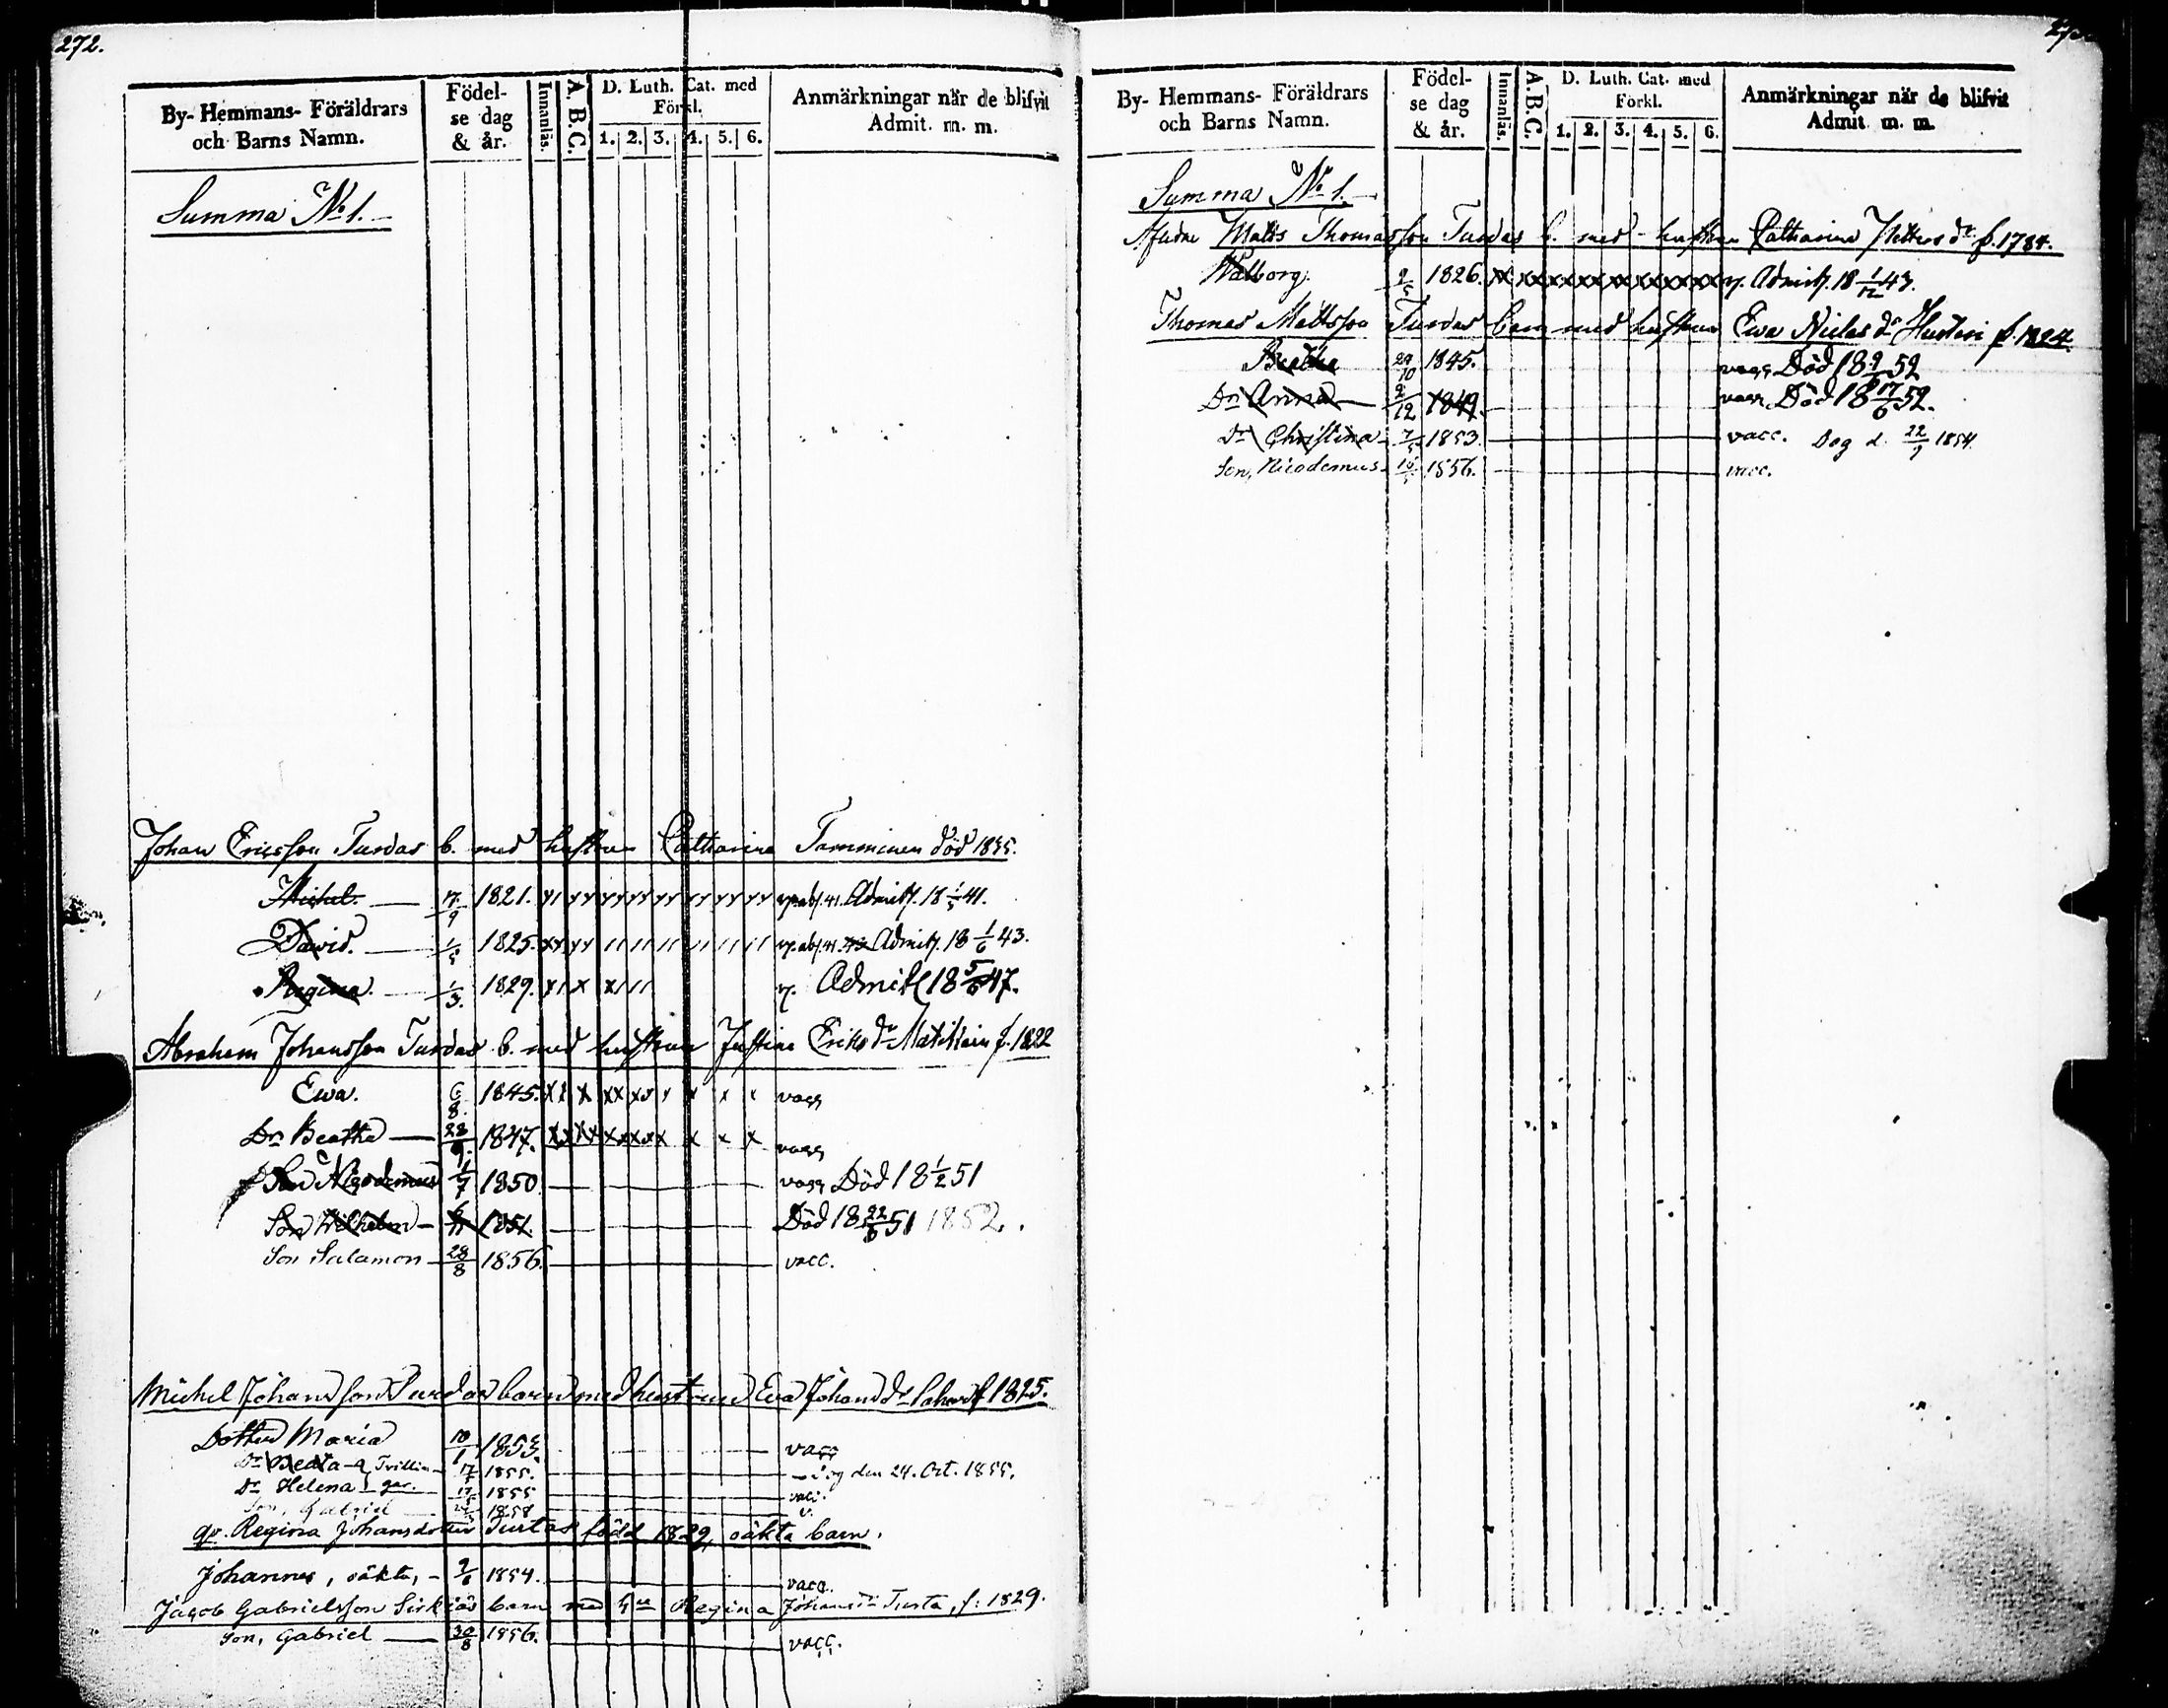 272.
By- Hemmans- Föräldrars och Barns Namn.
Födelse dag & år.
Innanläs.
A. B. C.
D. Luth. Cat. med Förkl.
1. 2. 3. 4. 5. 6.
Anmärkningar när de blifvit Admit. m. m.
Summa No 1.
Johan Ericsson Turdas b. med hustrun Catharina Tamminen död 1855.
Michel. 17/9 1821. Admitt. 18 1/5 41.
David. 1/5 1825. Admitt. 18 1/6 43.
Regina. 1/3. 1829. Admitt 18 5/6 47.
Abraham Johansson Turdas b. med hustrun Justina Eriks dr f. 1822
Ewa. 6/8. 1845. vacc
Dr Beatha 28/9. 1847. vacc
Son Nicodemus 1/7 1850. vacc Död 18 1/2 51
Son Wilhelm 1851. Död 18 22/6 51 1852.
Son Salamon 28/8 1856. vacc.
Michel Johansson Turdas barn med hustrun Eva Johans dr f 1825.
Dotter Maria 10/1 1853. vacc
Dr Beata Trillin 17/7 1855. dog den 24. Oct. 1855.
Dr Helena 17/7 1855 vacc.
Son, Gabriel 1858 v.
qv. Regina Johansdotter Turtas född 1829, oäkta barn.
Johannes, oäkta, 9/6 1854. vacc.
Jacob Gabrielsson barn med hu Regina Johans dr Turta, f. 1829.
Son, Gabriel 30/8 1856. vacc.
By- Hemmans- Föräldrars och Barns Namn.
Födelse dag & år.
Innanläs.
A. B. C.
D. Luth. Cat. med Förkl.
1. 2. 3. 4. 5. 6.
Anmärkningar när de blifvit Admit. m. m.
Summa No 1.
Afledne Matts Thomasson Turdas b. med hustrun Catharina Petters dr f. 1784.
Walborg. 2/5 1826. Admitt. 18 1/12 43.
Thomas Mattsson Turdas barn med hustrun Ewa Niclas dr f. 1824.
Beatha 29/10 1845. vacc Död 18 52
Dr Anna 2/12 1849. vacc Död 18 17/6 52.
Dr Christina 7/5 1853. vacc. Dog d. 22/9 1854.
Son, Nicodemus 1856. vacc.